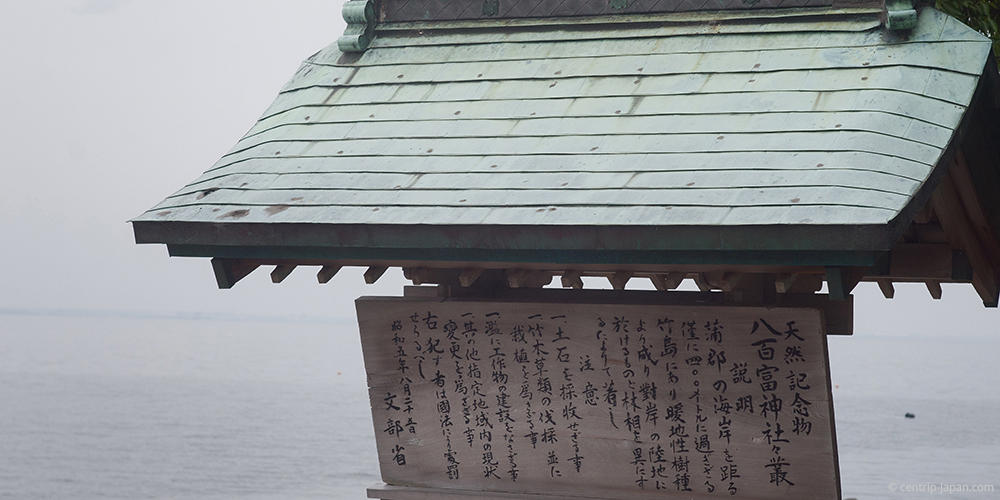 天然記念物
八百富神社々叢
説明
蒲郡の海岸を距る
僅に四〇〇メートルに過ぎざる
竹島にあり暖地性樹種
より成り對岸の陸地に
於けるものと林相を異にす
るによりて著し
注意
一土石を採收せざる事
一竹木草類の伐採並に
栽植を爲さざる事
一濫に工作物の建設をなさざる事
一其の他指定地域内の現状
変更を爲さざる事
右犯す者は國法により處罰
せらるべし
昭和五年八月二十五日
文部省
© centrip-japan.com